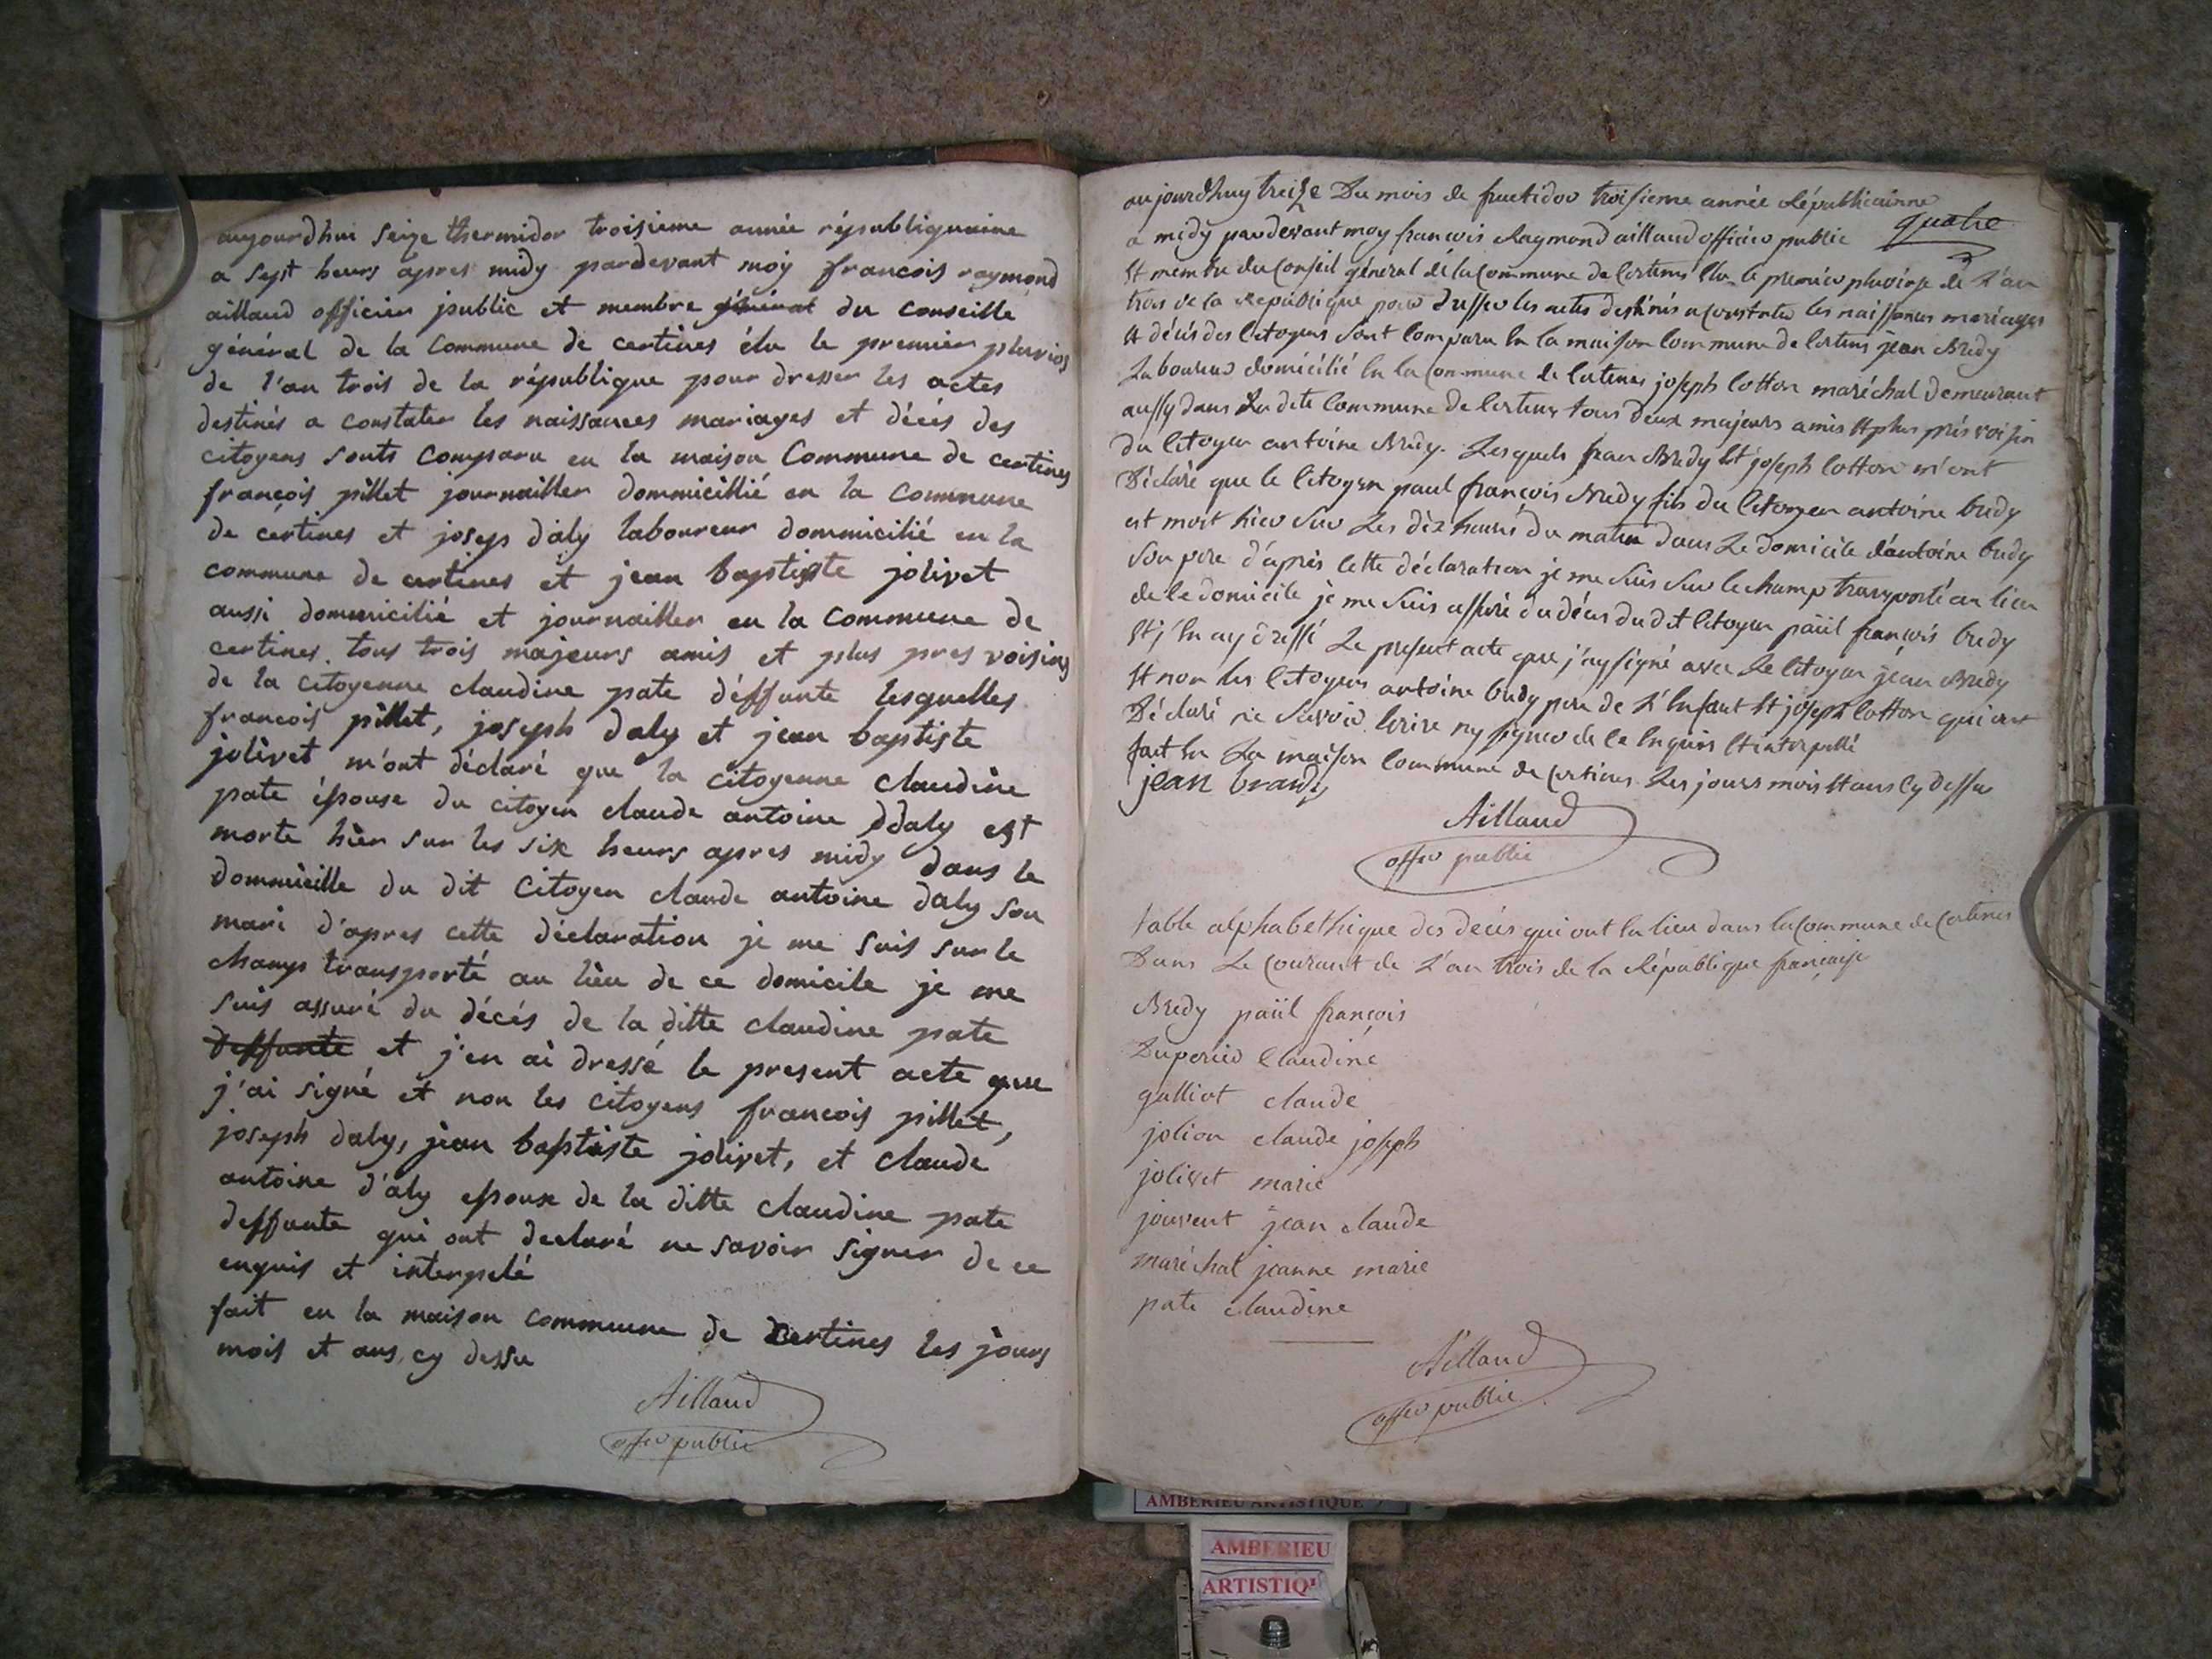 aujourdhui seize thermidor troisieme année républiquaine
a sept heurs apres midy pardevant moÿ francois raymond
aillaud officier public et membre général du conseille
général de la commune de certines élu le premier pluvios
de l'an trois de la république pour dresser les actes
destinés a constater les naissances mariages et décés des
citoyens sonts comparu en la maison Commune de certines
françois pillet journallier dommicillié en la commune
de certines et joseps d'aly laboureur dommicilié en la
commune de certines et jean baptiste jolivet
aussi dommicilié et journallier en la Commune de
certines tous trois majeurs amis et plus pres voisins
de la citoyenne claudine pate déffunte lesquelles
francois pillet, joseph daly et jean baptiste
jolivet m'ont déclaré que la citoyenne claudine
pate épouse du citoyen claude antoine Ddaly est
morte hièr sur les six heurs apres midy dans le
dommicille du dit Citoyen claude antoine daly son
mari d'apres cette déclaration je me suis sur le
champs transporté au lieu de ce domicile je me
suis assuré du décés de la ditte claudine pate
deffunte et j'en ai dressé le present acte que
j'ai signé et non les citoyens francois pillet,
joseph daly, jean baptiste jolivet, et claude
antoine d'aly epoux de la ditte claudine pate
deffunte qui ont declaré ne savoir signer de ce
enquis et interpelé
fait en la maison commune de Certines les jours
mois et ans, cy dessu
Aillaud
offier public
aujourdhuy treize Du mois de fructidor troisieme année Républicainne
quatre
a midy pardevant moy francois Raymond aillaud officier public
Et membre du Conseil général de la Commune de Certines Elu le premier pluviose de L'an
trois de la Republique pour dresser les actes destinés a Constater les naissances mariages
Et décés des Citoyens sont Comparu En la maison Commune de Certines jean Bredy
Laboureur domicilié En la Commune de Certines joseph Cotton maréchal demeurant
aussy dans La dite Commune de Certines tous deux majeurs amis Et plus prés voisin
du Citoyen antoine Bredy. Lesquels jean Bredy Et joseph Cotton m'ont
Déclaré que le Citoyen paul françois Bredy fils du Citoyen antoine bredy
est mort hier sur Les dix heures du matin dans Le domicile d'antoine bredy
son pere d'aprés Cette déclaration je me suis sur le champ transporté au lieu
de Ce domicile je me suis assuré du décés du dit Citoyen paül françois bredy
Et j'En ay dressé Le present acte que j'ay signé avec Le Citoyen jean Bredy
Et non les Citoyens antoine bredy pere de L'Enfant Et joseph Cotton qui ont
Déclaré ne Savoir Ecrire ny signer de Ce Enquis Et interpellé
fait En La maison Commune de Certines Les jours mois Et ans Cy dessu
jean bredy
Aillaud
offier public
table alphabethique des decés qui ont Eu lieu dans la Commune de Certines
Dans Le Courant de L'an trois de la République française
Bredy paül françois
Duperier Claudine
galliot claude
jolion claude joseph
jolivet marie
jouvent jean claude
maréchal jeanne marie
pate claudine
Aillaud
offier public
AMBERIEU ARTISTIQUE
AMBERIEU
ARTISTIQU